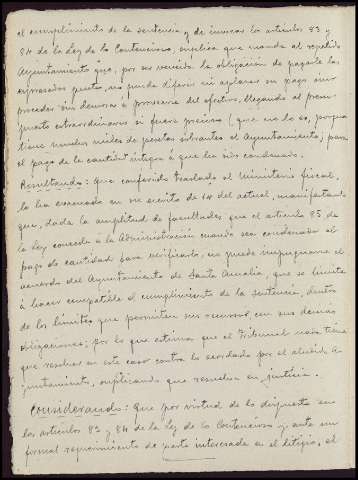 el cumplimiento de la sentencia y de invocar los artículos 83 y
84 de la Ley de lo Contencioso, suplica que mande al repetido
Ayuntamiento que, por ser vencida la obligación de pagarle las
expresadas pesetas, no puede diferir ni aplazar su pago sino
proceder sin demora a proveerse del efectivo, llegando al presu-
puesto extraordinario si fuera preciso (que no lo es, porque
tiene muchos miles de pesetas sobrantes el Ayuntamiento) para
el pago de la cantidad íntegra á que ha sido condenado.
Resultando: Que conferido traslado al Ministerio fiscal,
lo ha evacuado en su escrito de 14 del actual, manifestando
que, dada la amplitud de facultades que el artículo 85 de
la ley concede á la Administración cuando sea condenada al
pago de cantidad para verificarlo, no puede impugnarse el
acuerdo del Ayuntamiento de Santa Amalia, que se limita
á hacer compatible el cumplimiento de la sentencia, dentro
de los límites que permiten sus recursos con sus demás
obligaciones; por lo que estima que el Tribunal nada tiene
que resolver en este caso contra lo acordado por el aludido A-
yuntamiento, suplicando que resuelva en justicia.
Considerando: Que por virtud de lo dispuesto en
los artículos 83 y 84 de la Ley de lo Contencioso y ante un
formal requerimiento de parte interesada en el litigio, el